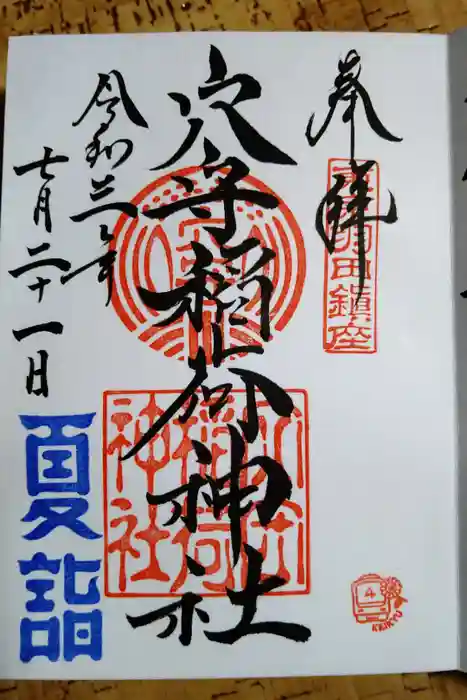 奉拝
羽田鎮座
穴守稲荷神社
稲荷
神社
令和三年
七月二十一日
夏詣
4
KEIKYU